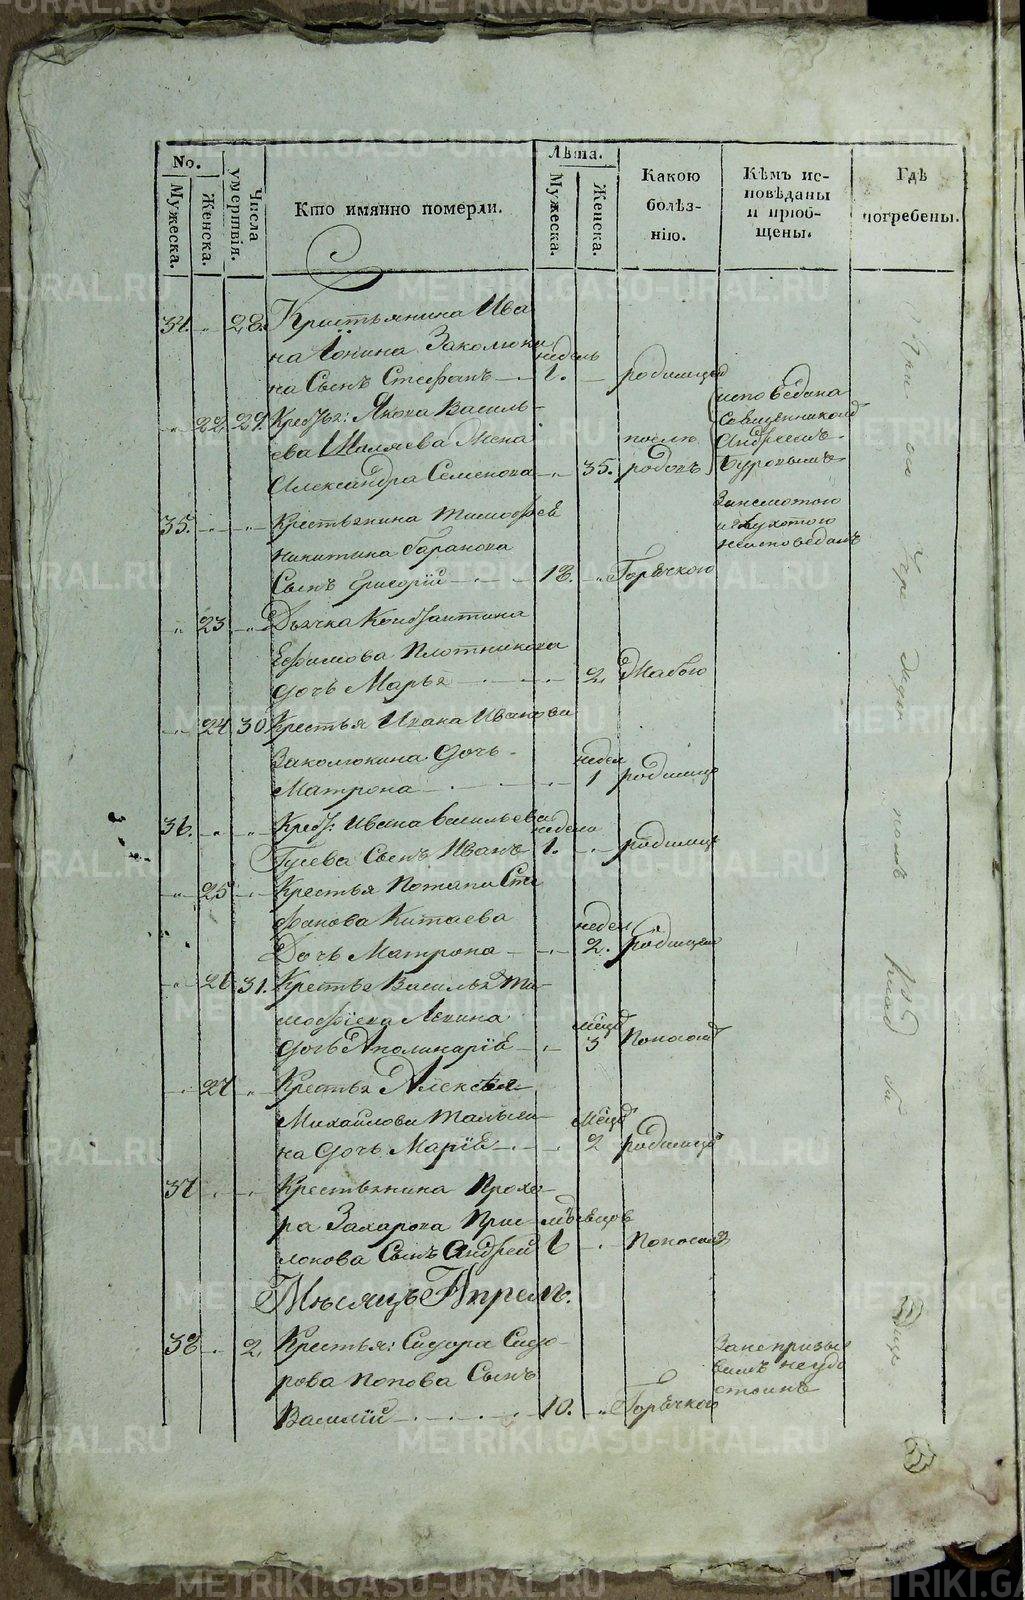 No.
Мужеска.
Женска.
Числа умертвія.
Кто имянно померли.
Лѣта.
Мужеска.
Женска.
Какою болѣз-нію.
Кѣмъ ис-повѣданы и пріоб-щены.
Гдѣ погребены.
34. 28. Крестьянина Ива
на Іонина Заколюки
на Сынъ Стефанъ недель 1. родимцем
22. 29. Крест: Якова Василь-
ева Шиляева Жена
Александра Семенова 35. после родовъ
исповедана
Священником
Андреемъ
Буровымъ
35. Крестьянина Тимофѣя
Никитина Баранова
Сынъ Григорій 18. Горячкою
Занемотою
и глухотою
неисповеданъ
23 Дьячка Константина
Ефимова Плотникова
дочь Марья 2 Жабою
24 30 Крестья Ивана Иванова
Заколюкина дочь
Матрона недел 1 родимце
36. Крест: Ивана Васильева
Гусева Сынъ Иванъ неделя 1. родимце
25 Крестья Потапа Сте
фанова Китаева
Дочь Матрона недел 2. родимцем
26 31. Крестья Василья Ти-
мофѣева Лекина
дочь Аполинарія месц 3 Поносом
27 Крестья Алексея
Михайлова Талыки-
на дочь Марія месц 2 родимцем
37 Крестьянина Прохо-
ра Захарова При-
локова Сынъ Андрей мѣсяцов 6 Поносом
Мѣсяцъ Апрель.
38 2 Крестья: Сидора Сидо-
рова Попова Сынъ
Василій 10. Горячкою
Занепризы
вомъ неудо
стоинъ
При